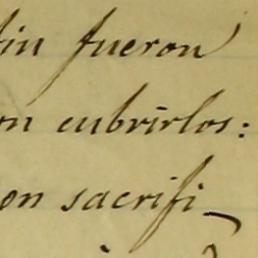 fin fueron
on cubrirlos:
on sacrifi-